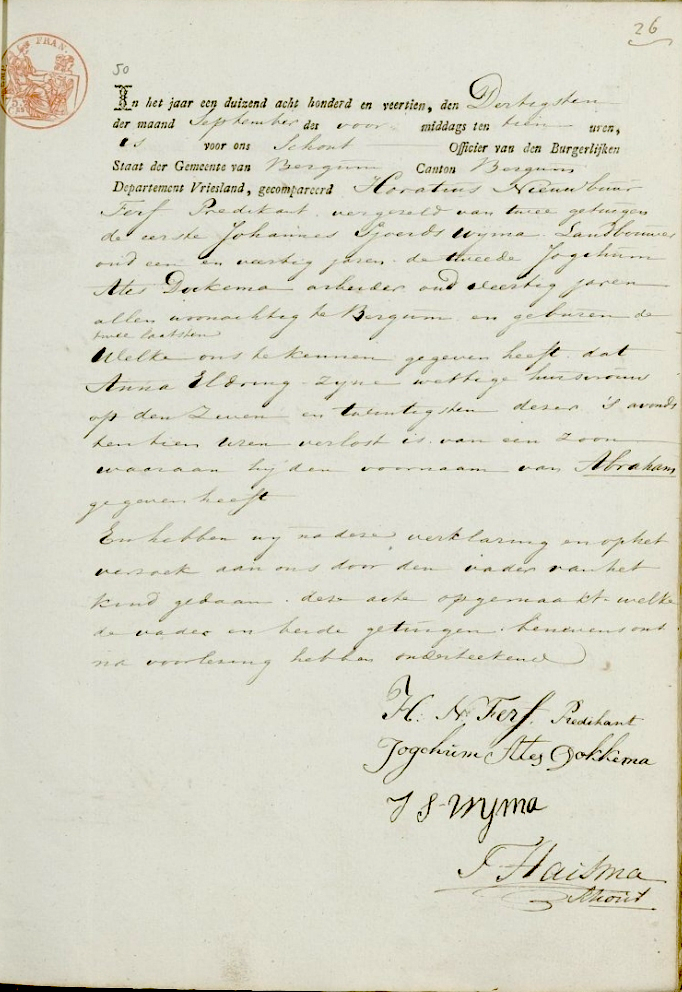 26
FRAN.
50
In het jaar een duizend acht honderd en veertien, den Dertigsten
der maand September des voor middags ten tien uren,
is voor ons Schout Officier van den Burgerlijken
Staat der Gemeente van Bergum Canton Bergum
Departement Vriesland, gecompareerd Horatius Nieuwbuur
Ferf Predikant vergezeld van twee getuigen
de eerste Johannes Sjoerds Wyma Landbouwer
oud een en veertig jaren de tweede Jogchum
Ates Dokkema arbeider oud veertig jaren
allen woonachtig te Bergum en geburen de
twee laatsten
Welke ons te kennen gegeven heeft dat
Anna Eldring zyne wettige huisvrouw
op den Zeven en twintigsten dezer 's avonds
ten tien uren verlost is van een zoon
waaraan hij den voornaam van Abraham
gegeven heeft
En hebben wy na deze verklaring en op het
verzoek aan ons door den vader van het
kind gedaan deze acte opgemaakt welke
de vader en beide getuigen benevens ons
na voorlezing hebben onderteekend
H. N. Ferf. Predikant
Jogchum Ates Dokkema
J S Wyma
T Haisma
Schout